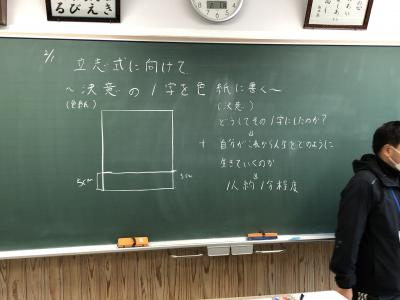 2/1
立志式に向けて
～決意の1字を色紙に書く～
(色紙)
(決意)
どうしてその1字にしたのか?
+ 自分がこれから人生をどのように
生きていくのか
1人約1分程度
5cm
5cm